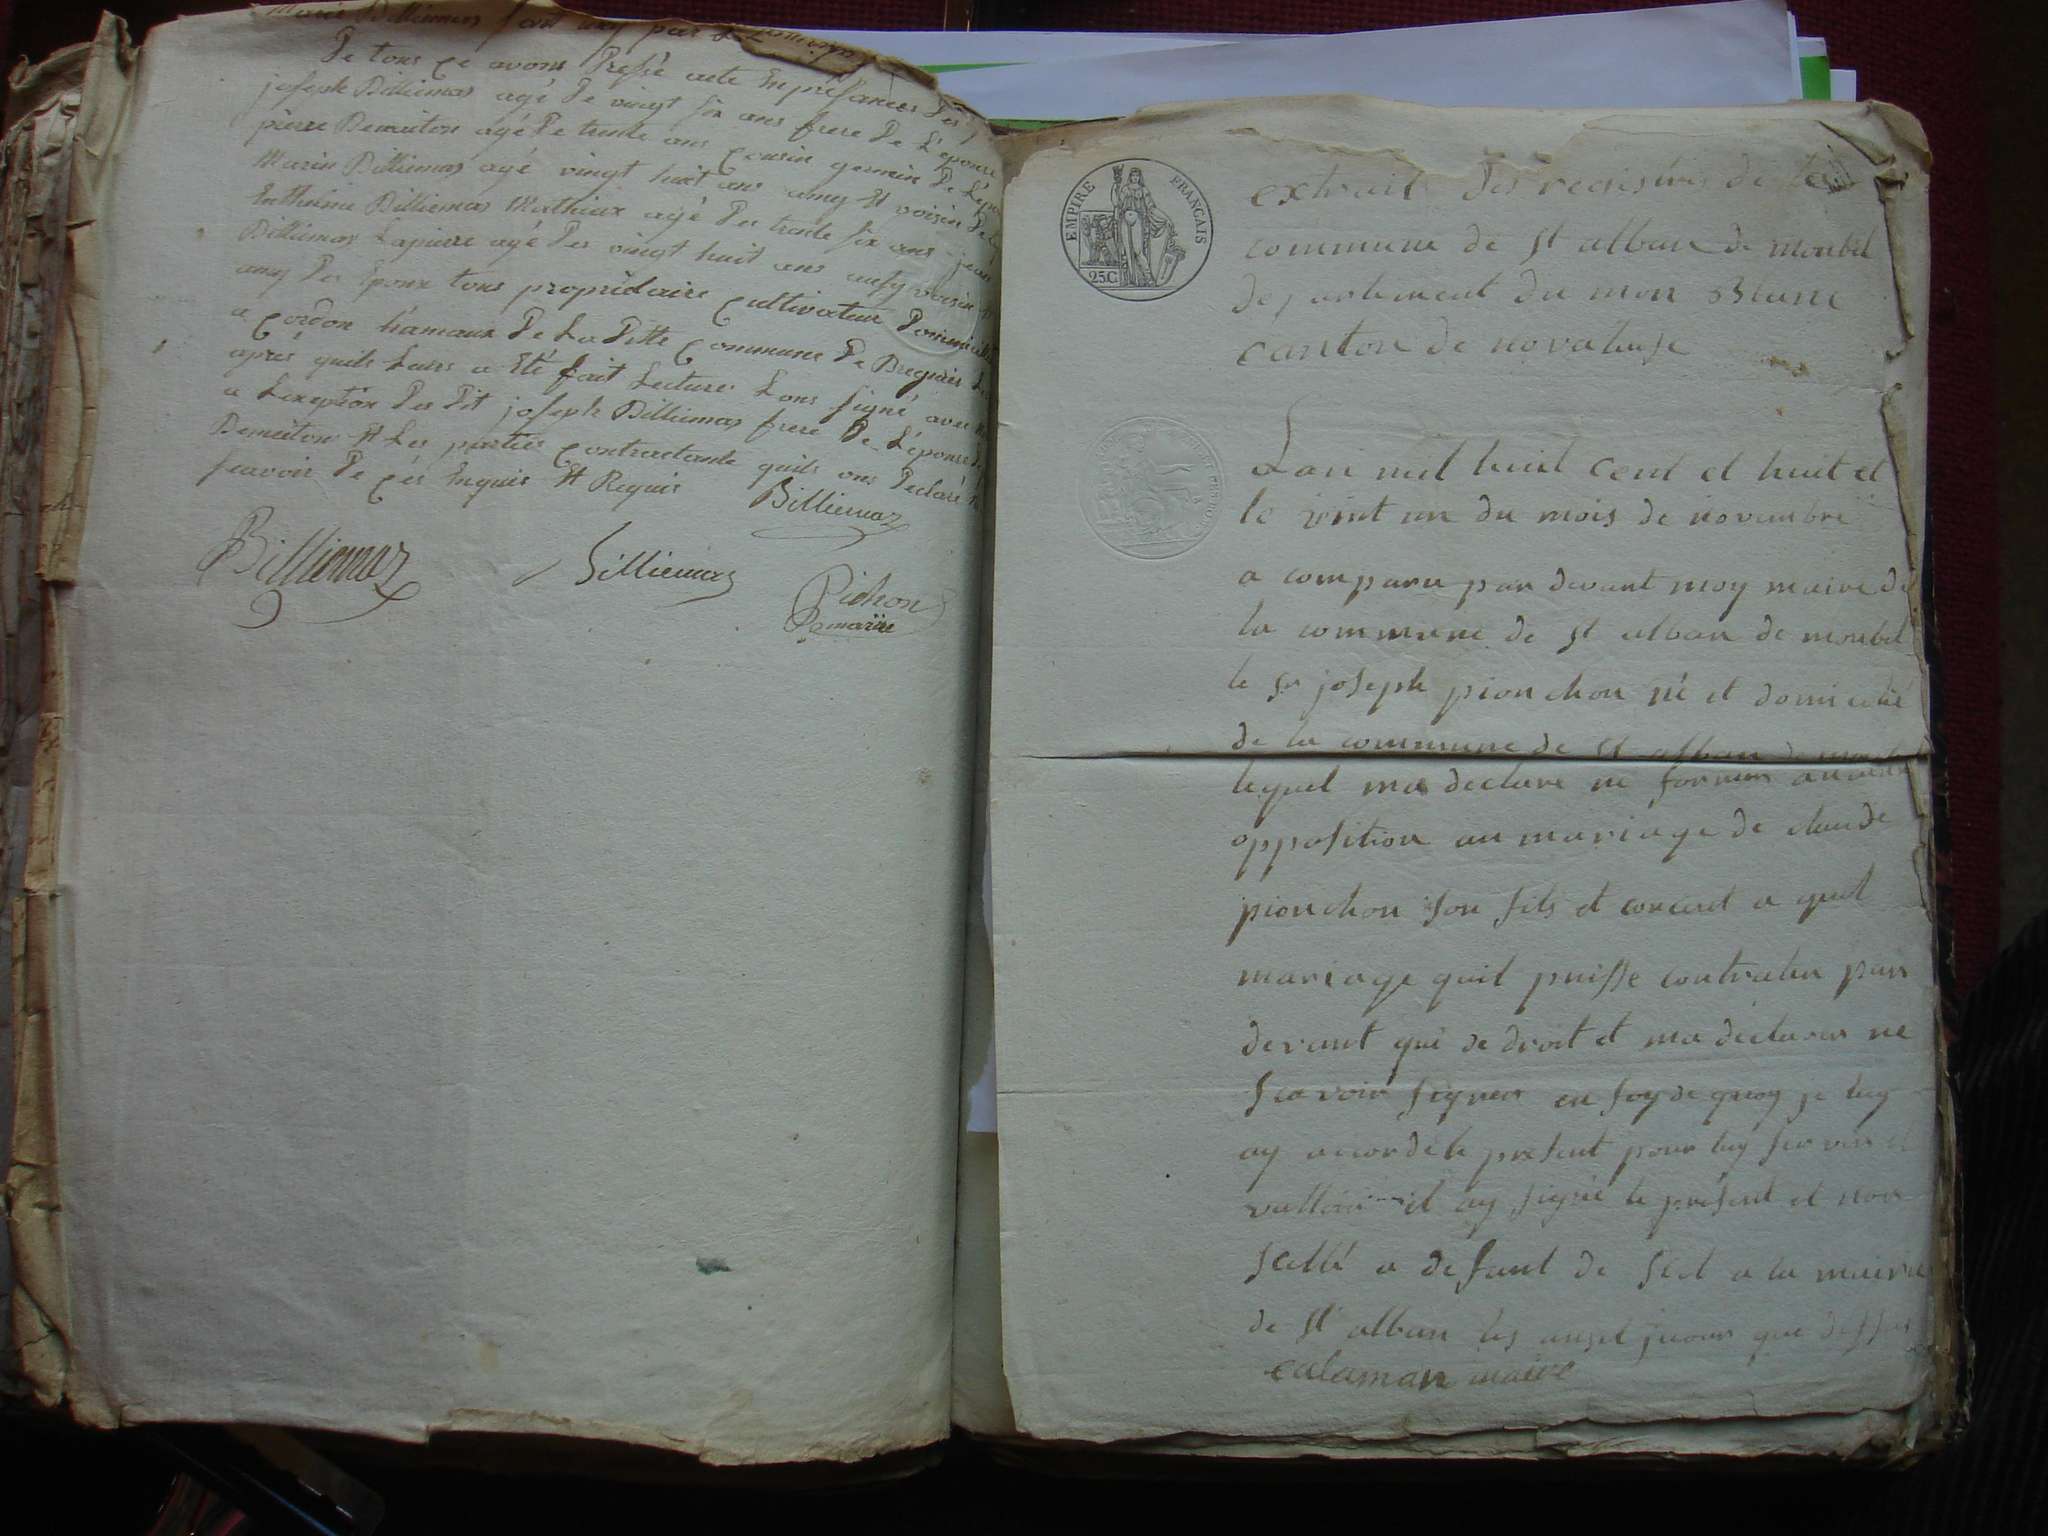 Marie Billiemaz
De tous ce avons Dressé acte En présances Des
joseph Billiemaz agé De vingt six ans frere De L'epouse
pierre Demeiton agé De trente ans Cousin germain De L'epou
Marin Billiemaz agé vingt huit ans amy Et voisin De
Enthelme Billiemaz Mathieux agé Des trente six ans jean
Billiemaz Lapierre agé Des vingt huit ans aussy voisin
amy Des Epoux tous propriétaire Cultivateur Domicilié
a Cordon hamaux De La Ditte Commune De Bregnier
aprés quils Leurs a Eté fait Lecture Lons signé avec
a Lexeption Des Dit joseph Billiemaz frere De L'épouse
Demeiton Et Les parties Contractante quils ons Declaré
scavoir De Ces Enquis Et Requis Billiemaz
Billiemaz Billiemaz
Pichon
maire
EMPIRE FRANÇAIS
25C
extrait des registres de la
commune de st alban de monbel
departement du mon Blanc
canton de novaleise
Lan mil huit cent et huit et
le vint un du mois de novembre
a comparu par devant moy maire de
la commune de st alban de monbel
le sr joseph pionchon né et domicilié
de la commune de st alban de
lequel ma declare ne former aucune
opposition au mariage de claude
pionchon son fils et concent a quel
mariage quil puisse contrater par
devant qui de droit et ma declarer ne
scavoir signer en foy de quoy je luy
ay accordé le present pour luy servir
valloir et ay signé le présent et non
scellé a defaut de scel a la mairie
de st alban les an et jeour que dessus
calaman maire